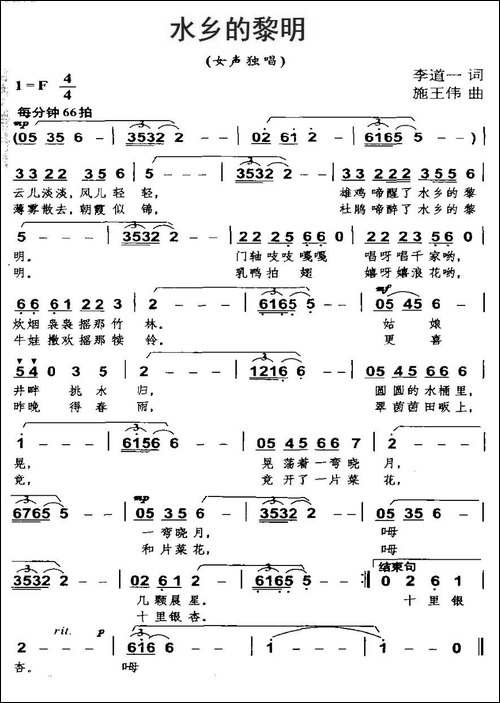 水乡的黎明
(女声独唱)
1=F 4/4
李道一 词
施王伟 曲
每分钟66拍
mp
(05 35 6 - | 3532 2 - - | 02 61 2 - | 6165 5 - -) |
33 22 35 6 | 5 - - - | 3532 2 - - | 33 22 3 55 6 |
云儿淡淡,风儿轻轻, 雄鸡啼醒了水乡的黎
薄雾散去,朝霞似锦, 杜鹃啼醉了水乡的黎
5 - - - | 3532 2 - - | 22 25 66 0 | 22 23 56 0 |
明。 门轴吱吱嘎嘎 唱呀唱千家哟,
明。 乳鸭拍翅 嬉呀嬉浪花哟,
66 61 22 3 | 2 - - - | 6165 5 - - | 05 45 6 - |
mf
炊烟袅袅摇那竹林。 姑娘
牛娃撒欢摇那犊铃。 更喜
54 0 3 5 | 2 - - - | 1216 6 - - | 05 45 66 7 |
井畔挑水归, 圆圆的水桶里,
昨晚得春雨, 翠茵茵田畈上,
1 - - - | 6156 6 - - | 05 45 66 7 | 2 - - - |
晃, 晃荡着一弯晓月,
竞, 竞开了一片菜花,
mp
6765 5 - - | 05 35 6 - | 3532 2 - - | 05 35 6 - |
一弯晓月, 呣
和片菜花, 呣
结束句
3532 2 - - | 02 61 2 - | 6165 5 - - :| 0 2 6 1 |
几颗晨星。 十里银
十里银杏。
rit. p
2 - - - | 616 6 - - | 1 - - - | 1 - - 0 |
杏。 呣